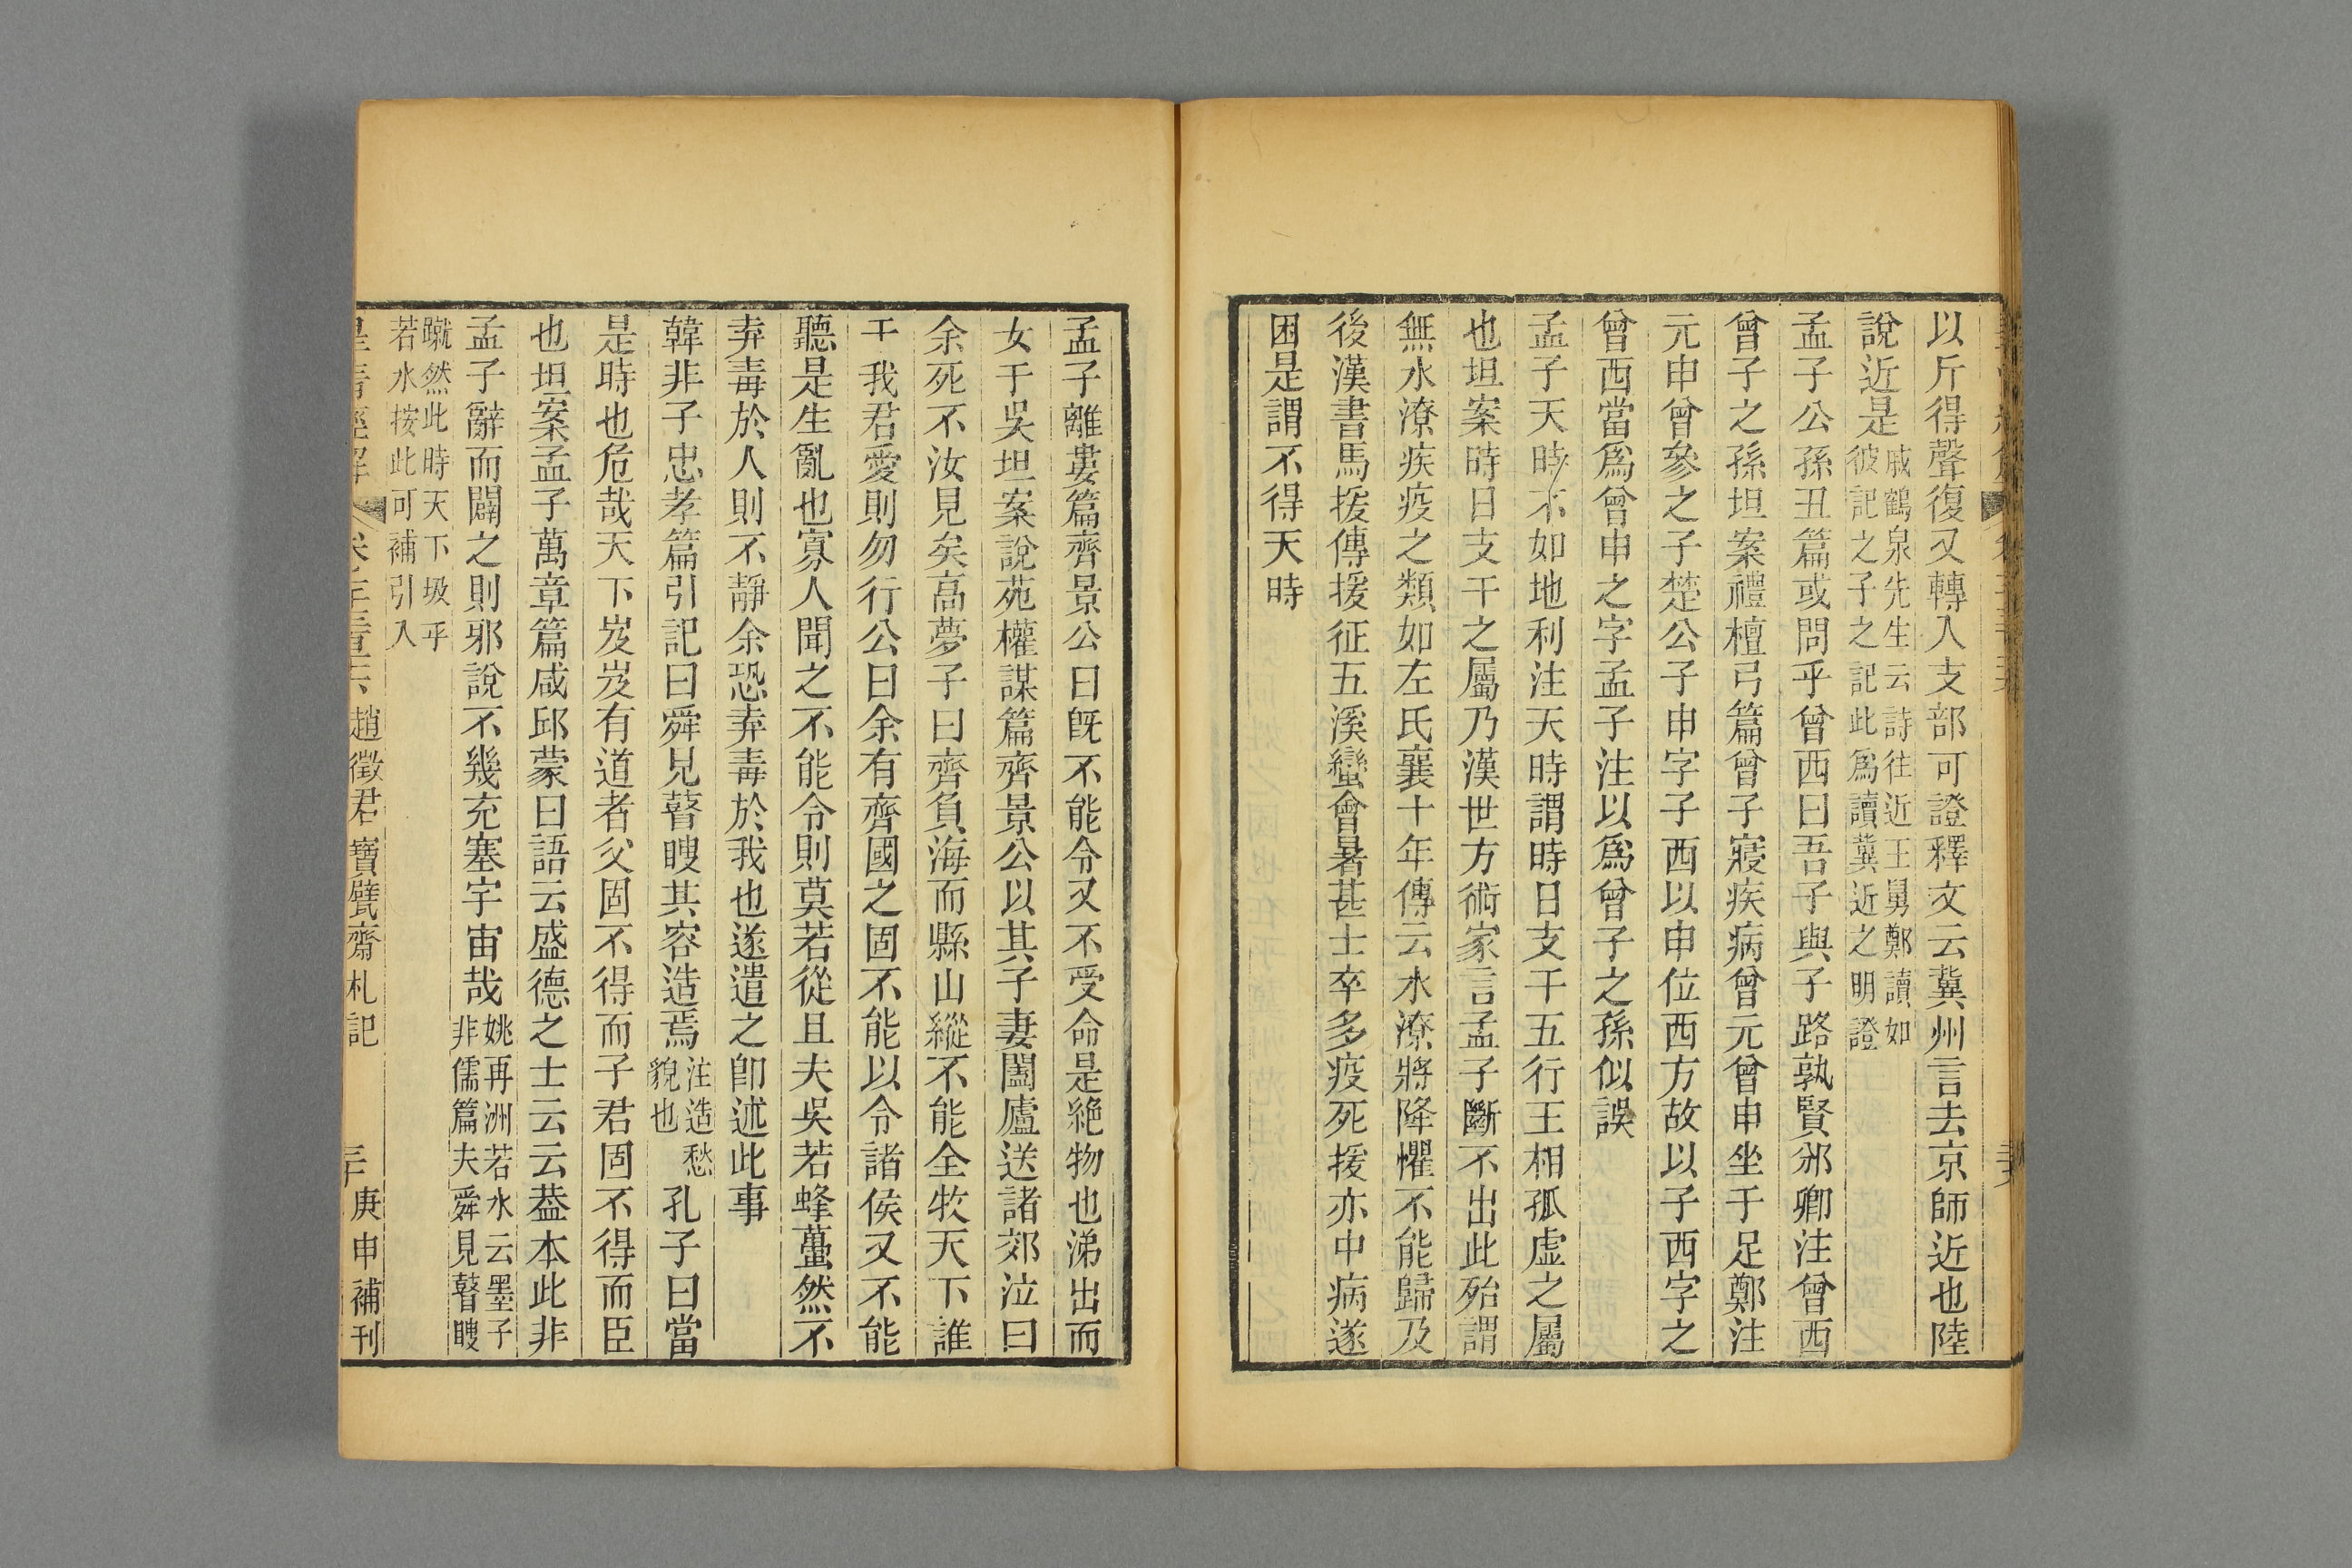 以斤得聲復又轉入支部可證釋文云冀州言去京師近也陸
說近是戚鶴泉先生云詩往近王舅鄭讀如
彼記之子之記此爲讀冀近之明證
孟子公孫丑篇或問乎曾西曰吾子與子路孰賢邠卿注曾西
曾子之孫坦案禮檀弓篇曾子寢疾病曾元曾申坐于足鄭注
元申曾參之子楚公子申字子西以申位西方故以子西字之
曾西當爲曾申之字孟子注以爲曾子之孫似誤
孟子天時不如地利注天時謂時日支干五行王相孤虛之屬
也坦案時日支干之屬乃漢世方術家言孟子斷不出此殆謂
無水潦疾疫之類如左氏襄十年傳云水潦將降懼不能歸及
後漢書馬援傳援征五溪蠻會暑甚士卒多疫死援亦中病遂
困是謂不得天時
孟子離婁篇齊景公曰旣不能令又不受命是絶物也涕出而
女于吳坦案說苑權謀篇齊景公以其子妻闔廬送諸郊泣曰
余死不汝見矣高夢子曰齊負海而縣山縱不能全牧天下誰
干我君愛則勿行公曰余有齊國之固不能以令諸侯又不能
聽是生亂也寡人聞之不能令則莫若從且夫吳若蜂蠆然不
弃毒於人則不靜余恐弃毒於我也遂遣之卽述此事
韓非子忠孝篇引記曰舜見瞽瞍其容造焉注造愁
貌也孔子曰當
是時也危哉天下岌岌有道者父固不得而子君固不得而臣
也坦案孟子萬章篇咸邱蒙曰語云盛德之士云云葢本此非
孟子辭而闢之則邪說不幾充塞宇宙哉姚再洲若水云墨子
非儒篇夫舜見瞽瞍
蹴然此時天下圾乎
若水按此可補引入
皇清經解 趙徵君寶甓齋札記 庚申補刊